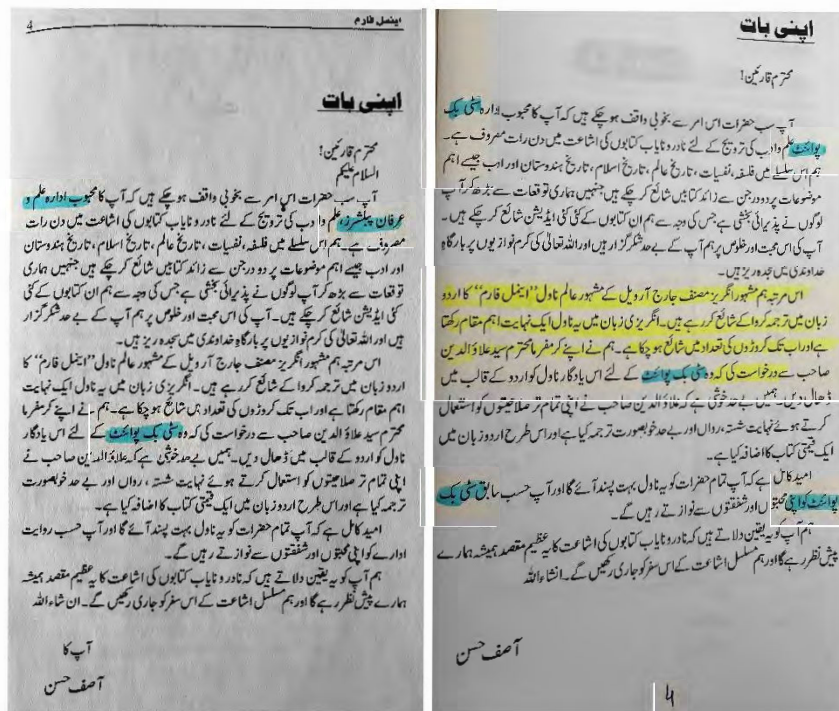 4
اینمل فارم
اپنی بات
محترم قارئین!
السلام علیکم
آپ سب حضرات اس امر سے بخوبی واقف ہوچکے ہیں کہ آپ کا محبوب ادارہ علم و
عرفان پبلشرز، علم و ادب کی ترویج کے لئے نادر و نایاب کتابوں کی اشاعت میں دن رات
مصروف ہے۔ ہم اس سلسلے میں فلسفہ، نفسیات، تاریخ عالم، تاریخ اسلام، تاریخ ہندوستان
اور ادب جیسے اہم موضوعات پر دو درجن سے زائد کتابیں شائع کرچکے ہیں جنہیں ہماری
توقعات سے بڑھ کر آپ لوگوں نے پذیرائی بخشی ہے جس کی وجہ سے ہم ان کتابوں کے کئی
کئی ایڈیشن شائع کرچکے ہیں۔ آپ کی اس محبت اور خلوص پر ہم آپ کے بے حد شکر گزار
ہیں اور اللہ تعالیٰ کی کرم نوازیوں پر بارگاہ خداوندی میں سجدہ ریز ہیں۔
اس مرتبہ ہم مشہور انگریز مصنف جارج آرویل کے مشہور عالم ناول ’’اینمل فارم‘‘ کا
اردو زبان میں ترجمہ کروا کے شائع کر رہے ہیں۔ انگریزی زبان میں یہ ناول ایک نہایت
اہم مقام رکھتا ہے اور اب تک کروڑوں کی تعداد میں شائع ہوچکا ہے۔ ہم نے اپنے کرمفرما
محترم سید علاؤ الدین صاحب سے درخواست کی کہ وہ سٹی بک پوائنٹ کے لئے اس یادگار
ناول کو اردو کے قالب میں ڈھال دیں۔ ہمیں بے حد خوشی ہے کہ علاؤ الدین صاحب نے
اپنی تمام تر صلاحیتوں کو استعمال کرتے ہوئے نہایت شستہ، رواں اور بے حد خوبصورت
ترجمہ کیا ہے اور اس طرح اردو زبان میں ایک قیمتی کتاب کا اضافہ کیا ہے۔
امید کامل ہے کہ آپ تمام حضرات کو یہ ناول بہت پسند آئے گا اور آپ حسب روایت
ادارے کو اپنی محبتوں اور شفقتوں سے نوازتے رہیں گے۔
ہم آپ کو یہ یقین دلاتے ہیں کہ نادر و نایاب کتابوں کی اشاعت کا یہ عظیم مقصد ہمیشہ
ہمارے پیش نظر رہے گا اور ہم مسلسل اشاعت کے اس سفر کو جاری رکھیں گے۔ ان شاء اللہ
آپ کا
آصف حسن
اپنی بات
محترم قارئین!
آپ سب حضرات اس امر سے بخوبی واقف ہوچکے ہیں کہ آپ کا محبوب ادارہ سٹی بک
پوائنٹ علم و ادب کی ترویج کے لئے نادر و نایاب کتابوں کی اشاعت میں دن رات مصروف ہے۔
ہم اس سلسلے میں فلسفہ، نفسیات، تاریخ عالم، تاریخ اسلام، تاریخ ہندوستان اور ادب جیسے اہم
موضوعات پر دو درجن سے زائد کتابیں شائع کرچکے ہیں جنہیں ہماری توقعات سے بڑھ کر آپ
لوگوں نے پذیرائی بخشی ہے جس کی وجہ سے ہم ان کتابوں کے کئی کئی ایڈیشن شائع کرچکے ہیں۔
آپ کی اس محبت اور خلوص پر ہم آپ کے بے حد شکر گزار ہیں اور اللہ تعالیٰ کی کرم نوازیوں پر بارگاہ
خداوندی میں سجدہ ریز ہیں۔
اس مرتبہ ہم مشہور انگریز مصنف جارج آرویل کے مشہور عالم ناول ’’اینمل فارم‘‘ کا اردو
زبان میں ترجمہ کروا کے شائع کر رہے ہیں۔ انگریزی زبان میں یہ ناول ایک نہایت اہم مقام رکھتا
ہے اور اب تک کروڑوں کی تعداد میں شائع ہوچکا ہے۔ ہم نے اپنے کرمفرما محترم سید علاؤ الدین
صاحب سے درخواست کی کہ وہ سٹی بک پوائنٹ کے لئے اس یادگار ناول کو اردو کے قالب میں
ڈھال دیں۔ ہمیں بے حد خوشی ہے کہ علاؤ الدین صاحب نے اپنی تمام تر صلاحیتوں کو استعمال
کرتے ہوئے نہایت شستہ، رواں اور بے حد خوبصورت ترجمہ کیا ہے اور اس طرح اردو زبان میں
ایک قیمتی کتاب کا اضافہ کیا ہے۔
امید کامل ہے کہ آپ تمام حضرات کو یہ ناول بہت پسند آئے گا اور آپ حسب سابق سٹی بک
پوائنٹ کو اپنی محبتوں اور شفقتوں سے نوازتے رہیں گے۔
ہم آپ کو یہ یقین دلاتے ہیں کہ نادر و نایاب کتابوں کی اشاعت کا یہ عظیم مقصد ہمیشہ ہمارے
پیش نظر رہے گا اور ہم مسلسل اشاعت کے اس سفر کو جاری رکھیں گے۔ انشاء اللہ
آصف حسن
4